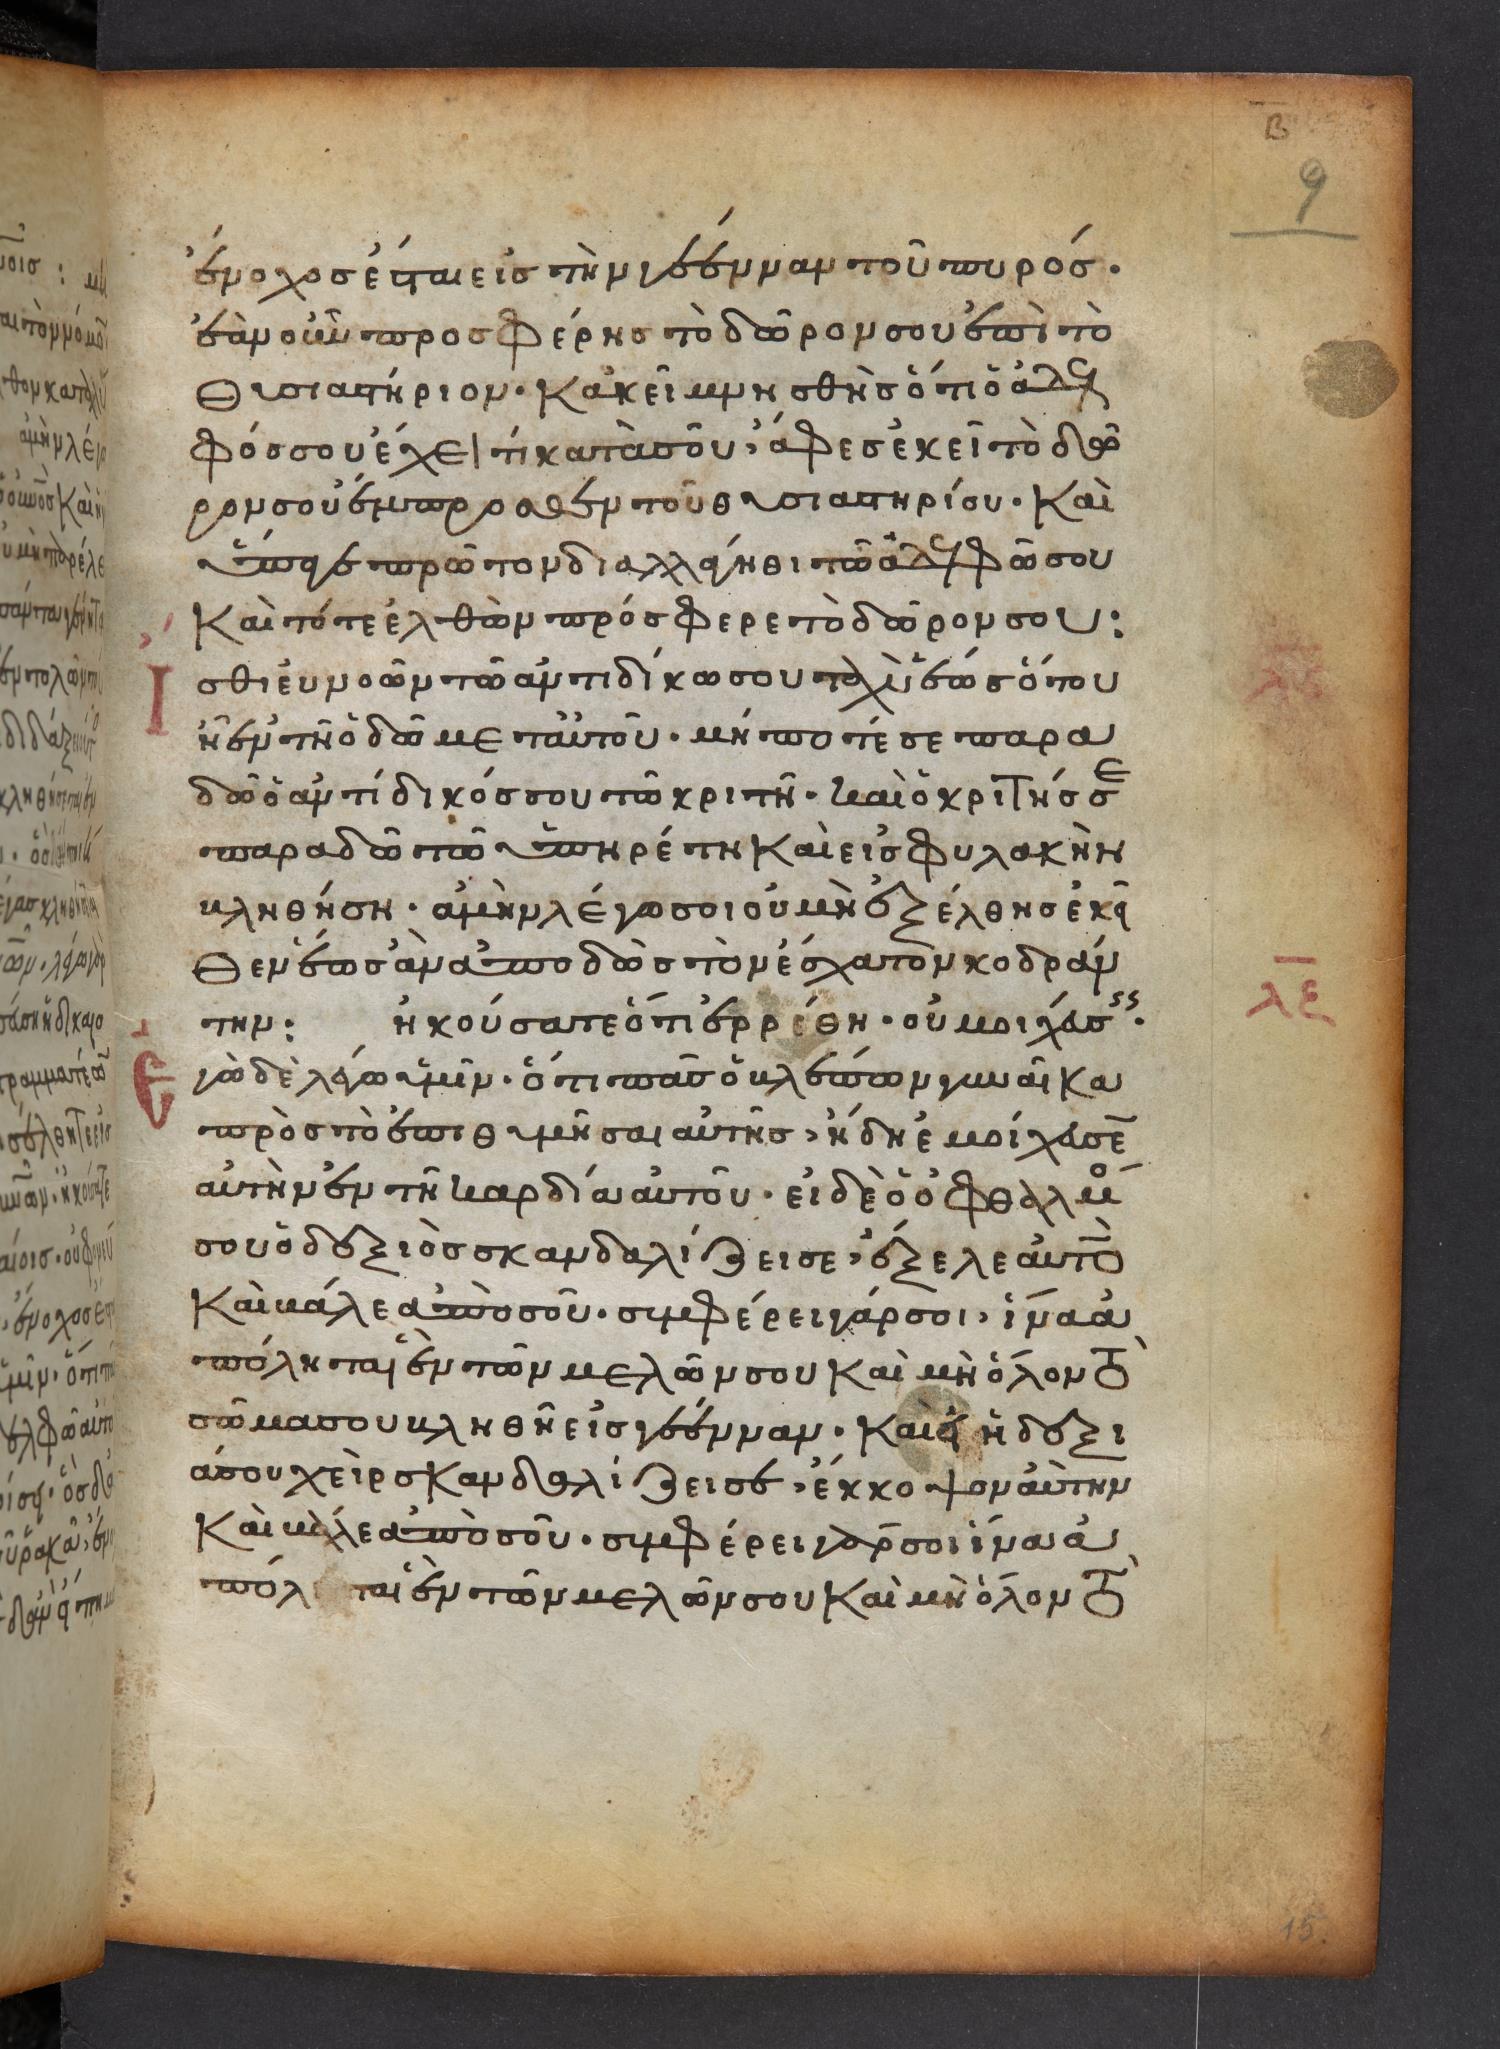 β
9
ἔνοχος ἔσται εἰς τὴν γέενναν τοῦ πυρός.
ἐὰν οὖν προσφέρης τὸ δῶρον σου ἐπὶ τὸ
θυσιαστήριον. κἀκεῖ μνησθῆς ὅτι ὁ ἀδελ
φός σου ἔχει τί κατὰ σοῦ, ἄφες ἐκεῖ τὸ δῶ
ρον σου ἔμπροσθεν τοῦ θυσιαστηρίου. καὶ
ὕπαγε πρῶτον διαλλάγηθι τῶ ἀδελφῶ σου
καὶ τότε ἐλθὼν πρόσφερε τὸ δῶρον σου:
Ἴσθι εὐνοῶν τῶ ἀντιδίκω σου ταχὺ ἕως ὅτου
ἦ ἐν τῆ ὁδῶ μετ' αὐτοῦ. μήποτέ σε παρα
δῶ ὁ ἀντίδικός σου τῶ κριτῆ. καὶ ὁ κριτής σε
παραδῶ τῶ ὑπηρέτη καὶ εἰς φυλακὴν
κληθήση. ἀμὴν λέγω σοι οὐ μὴ ἐξέλθης ἐκεῖ
θεν ἕως ἂν ἀποδῶς τὸν ἔσχατον κοδράν
την: ἠκούσατε ὅτι ἐρρέθη. οὐ μοιχεύσεις.
Ἐγὼ δὲ λέγω ὑμῖν. ὅτι πᾶς ὁ βλέπων γυναῖκα
πρὸς τὸ ἐπιθυμῆσαι αὐτῆς, ἤδη ἐμοίχευσεν
αὐτὴν ἐν τῆ καρδία αὐτοῦ. εἰ δὲ ὁ ὀφθαλμός
σου ὁ δεξιὸς σκανδαλίζει σε, ἔξελε αὐτὸν
καὶ βάλε ἀπὸ σοῦ. συμφέρει γάρ σοι, ἵνα ἀ
πόληται ἓν τῶν μελῶν σου καὶ μὴ ὅλον τὸ
σῶμα σου βληθῆ εἰς γέενναν. καὶ εἰ ἡ δεξι
ά σου χεὶρ σκανδαλίζει σε, ἔκκοψον αὐτὴν
καὶ βάλε ἀπὸ σοῦ. συμφέρει γάρ σοι ἵνα ἀ
πόληται ἓν τῶν μελῶν σου καὶ μὴ ὅλον τὸ
λε
15.